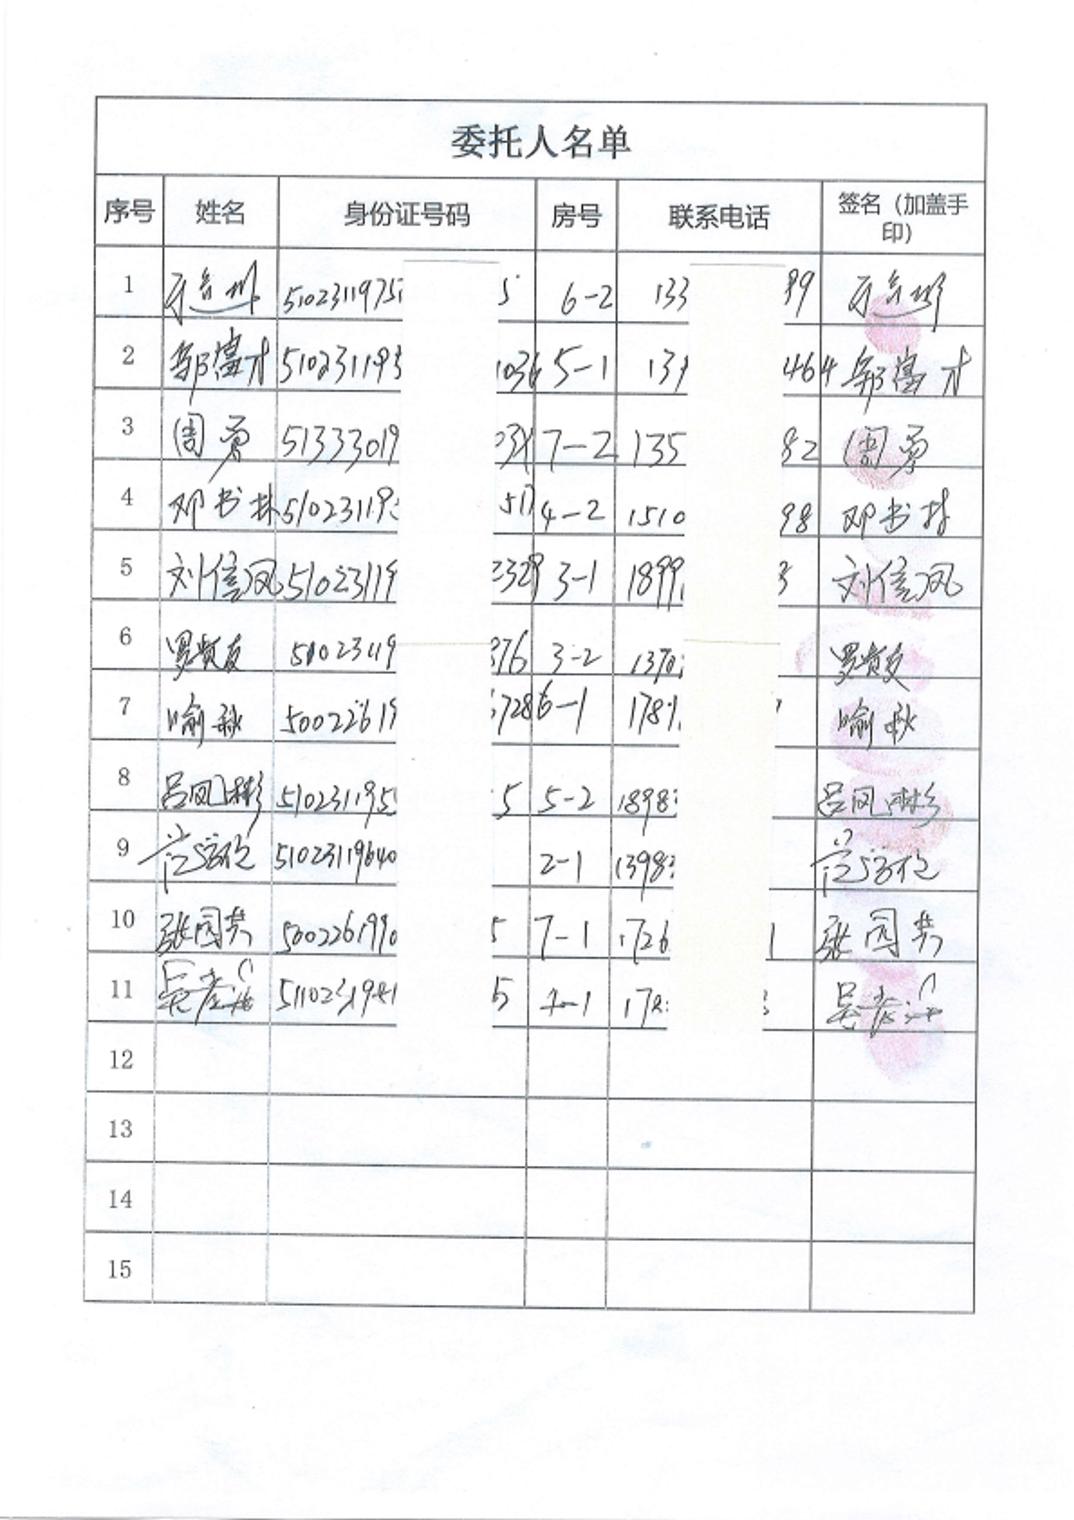 委托人名单
序号 姓名 身份证号码 房号 联系电话 签名（加盖手印）
1 5102311975 5 6-2 133 89
2 邹富才 510231193 1036 5-1 139 464 邹富才
3 周勇 51333019 031 7-2 135 82 周勇
4 邓书林 51023119 511 4-2 1510 98 邓书林
5 刘信凤 51023119 2329 3-1 1899 3 刘信凤
6 罗贤友 51023119 876 3-2 1370 罗贤友
7 喻秋 50022619 6728 6-1 1789 喻秋
8 吕凤彬 510231195 5 5-2 1898 吕凤彬
9 51023119640 2-1 1398
10 张园共 500226199 5 7-1 1726 1 张园共
11 5 1-1 178
12
13
14
15